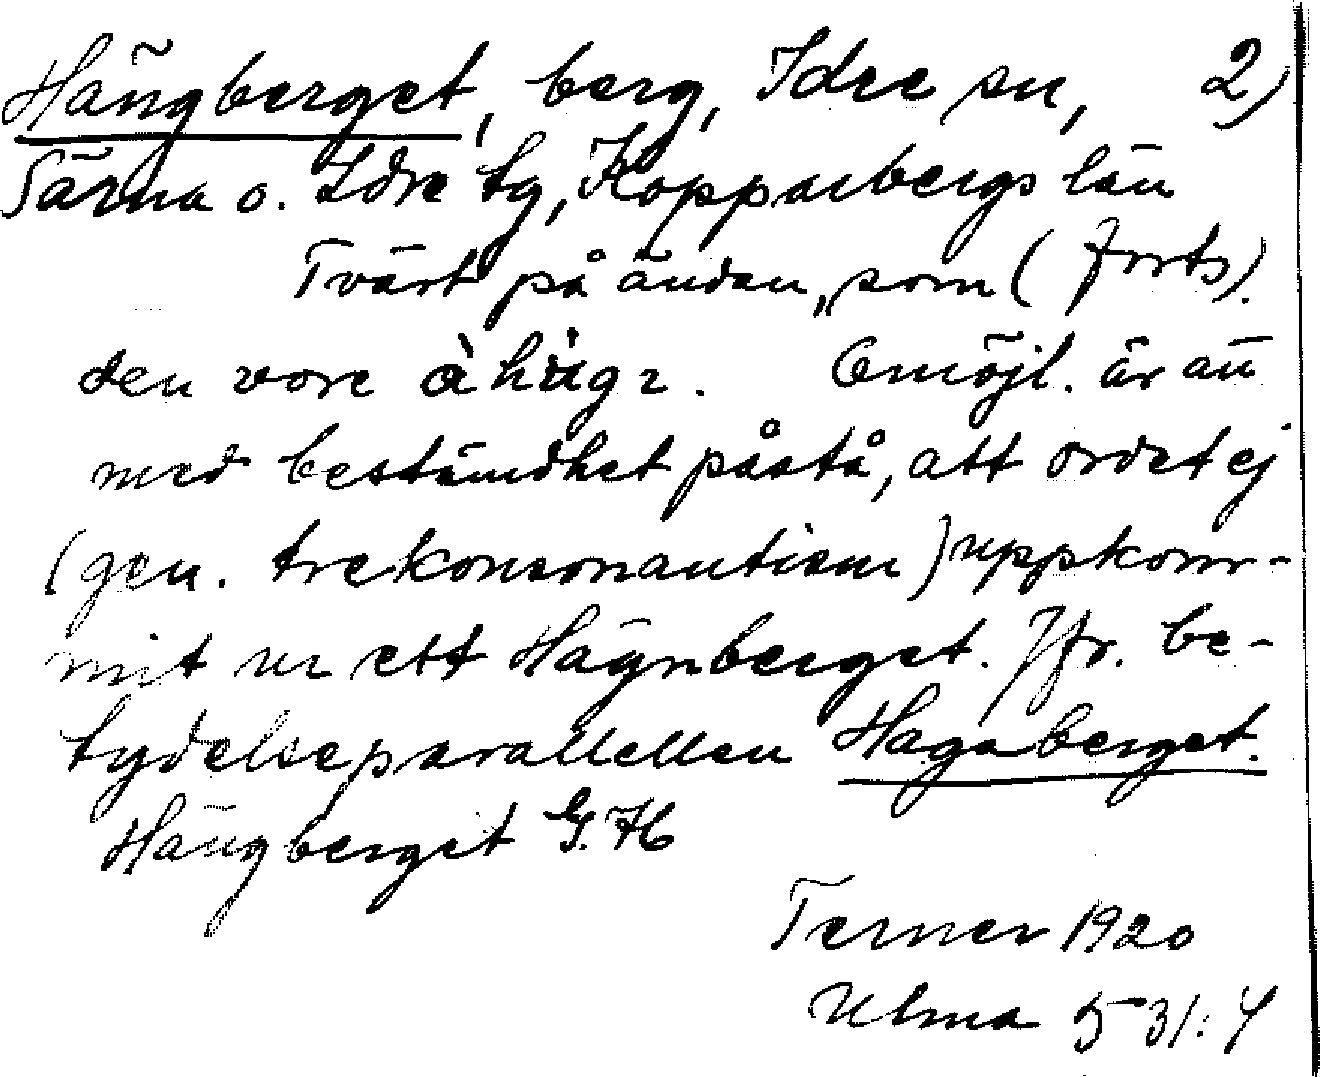 Hängberget, berg, Idre sn, 2)
Särna o. Idre tg, Kopparbergs län
Tvärt på ändan, som (forts).
den vore àhügz. Omöjl. är att
med bestämdhet påstå, att ordet ej
(gen. trekonsonantism) uppkom-
mit ur ett Hägnberget. Jfr. be-
tydelseparallellen Hagaberget.
Hängberget G.H
Terner 1920
Ulma 531:4